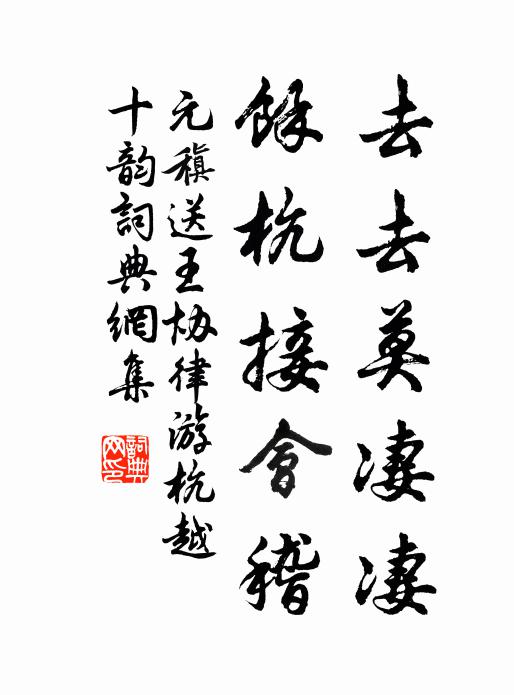 去去莫淒淒
餘杭接會稽
元稹送王协律游杭越
十韵詞典網集
詞典網印